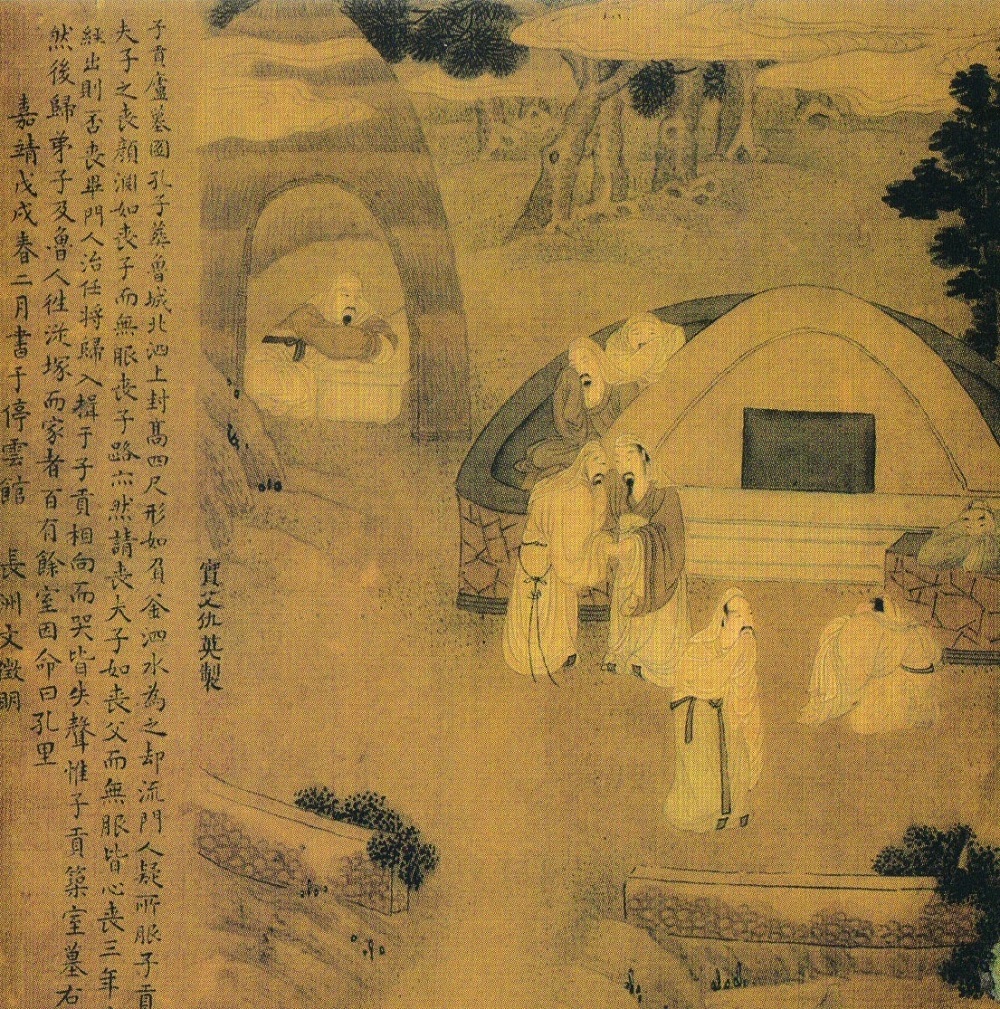 實父仇英製
子貢廬墓圖孔子葬魯城北泗上封高四尺形如負釜泗水為之却流門人疑所服子貢
夫子之喪顏淵如喪子而無服喪子路亦然請喪夫子如喪父而無服皆心喪三年
絰出則否喪畢門人治任將歸入揖于子貢相向而哭皆失聲惟子貢築室墓右
然後歸弟子及魯人徃從塚而家者百有餘室因命曰孔里
嘉靖戊戌春二月書于停雲館 長洲文徵明